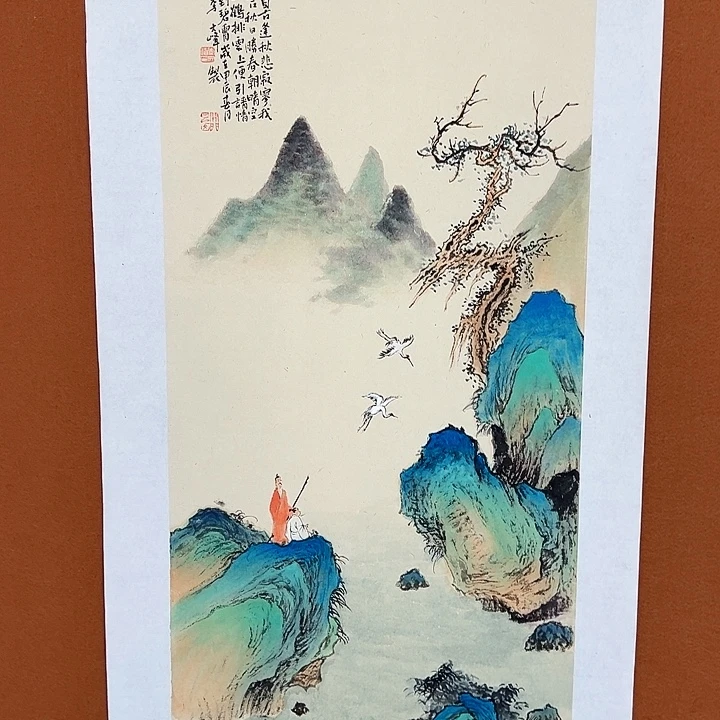 自古逢秋悲寂寥我
言秋日勝春朝晴空
鶴排雲上便引詩情
到碧霄歲在甲辰月
峰製